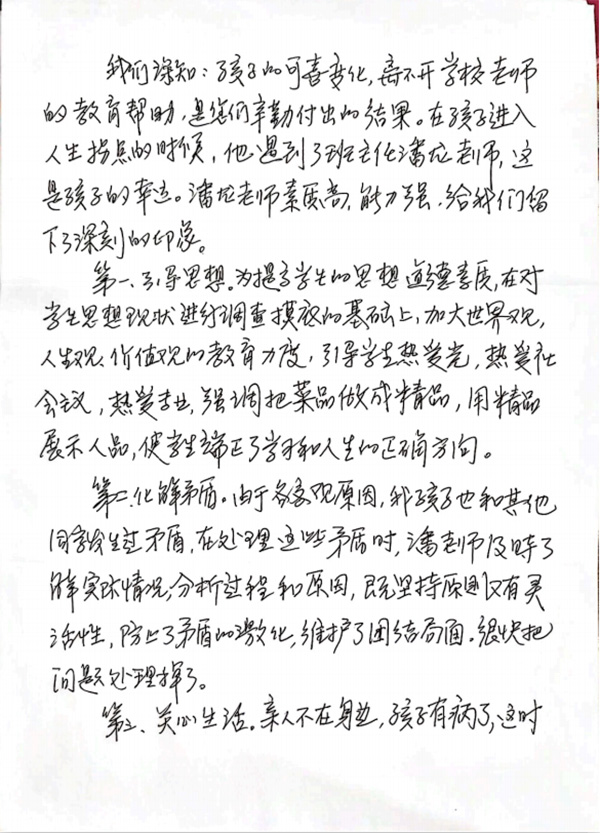 我们深知：孩子的可喜变化，离不开学校老师
的教育帮助，是您们辛勤付出的结果。在孩子进入
人生拐点的时候，他遇到了班主任潘龙老师，这
是孩子的幸运。潘龙老师素质高，能力强，给我们留
下了深刻的印象。
第一、引导思想。为提高学生的思想道德素质，在对
学生思想现状进行调查摸底的基础上，加大世界观，
人生观、价值观的教育力度，引导学生热爱党，热爱社
会主义，热爱专业，强调把菜品做成精品，用精品
展示人品，使学生端正了学习和人生的正确方向。
第二、化解矛盾。由于各客观原因，我孩子也和其他
同学发生过矛盾，在处理这些矛盾时，潘老师及时了
解实际情况，分析过程和原因，既坚持原则又有灵
活性，防止了矛盾的激化，维护了团结局面。很快把
问题处理掉了。
第三、关心生活。亲人不在身边，孩子有病了，这时